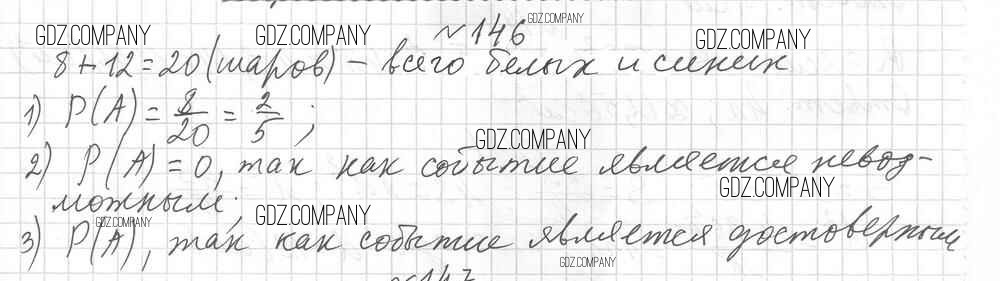 №146
8+12=20(шаров) – всего белых и синих
1) P(A) = 8/20 = 2/5 ;
2) P(A)=0, так как событие является невоз-
можным;
3) P(A), так как событие является достоверным
№147
GDZ.COMPANY
GDZ.COMPANY
GDZ.COMPANY
GDZ.COMPANY
GDZ.COMPANY
GDZ.COMPANY
GDZ.COMPANY
GDZ.COMPANY
GDZ.COMPANY